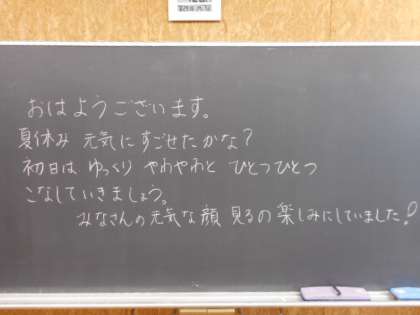 おはようございます。
夏休み 元気に すごせたかな？
初日は ゆっくり やわやわと ひとつひとつ
こなしていきましょう。
みなさんの元気な顔 見るの楽しみにしていました！